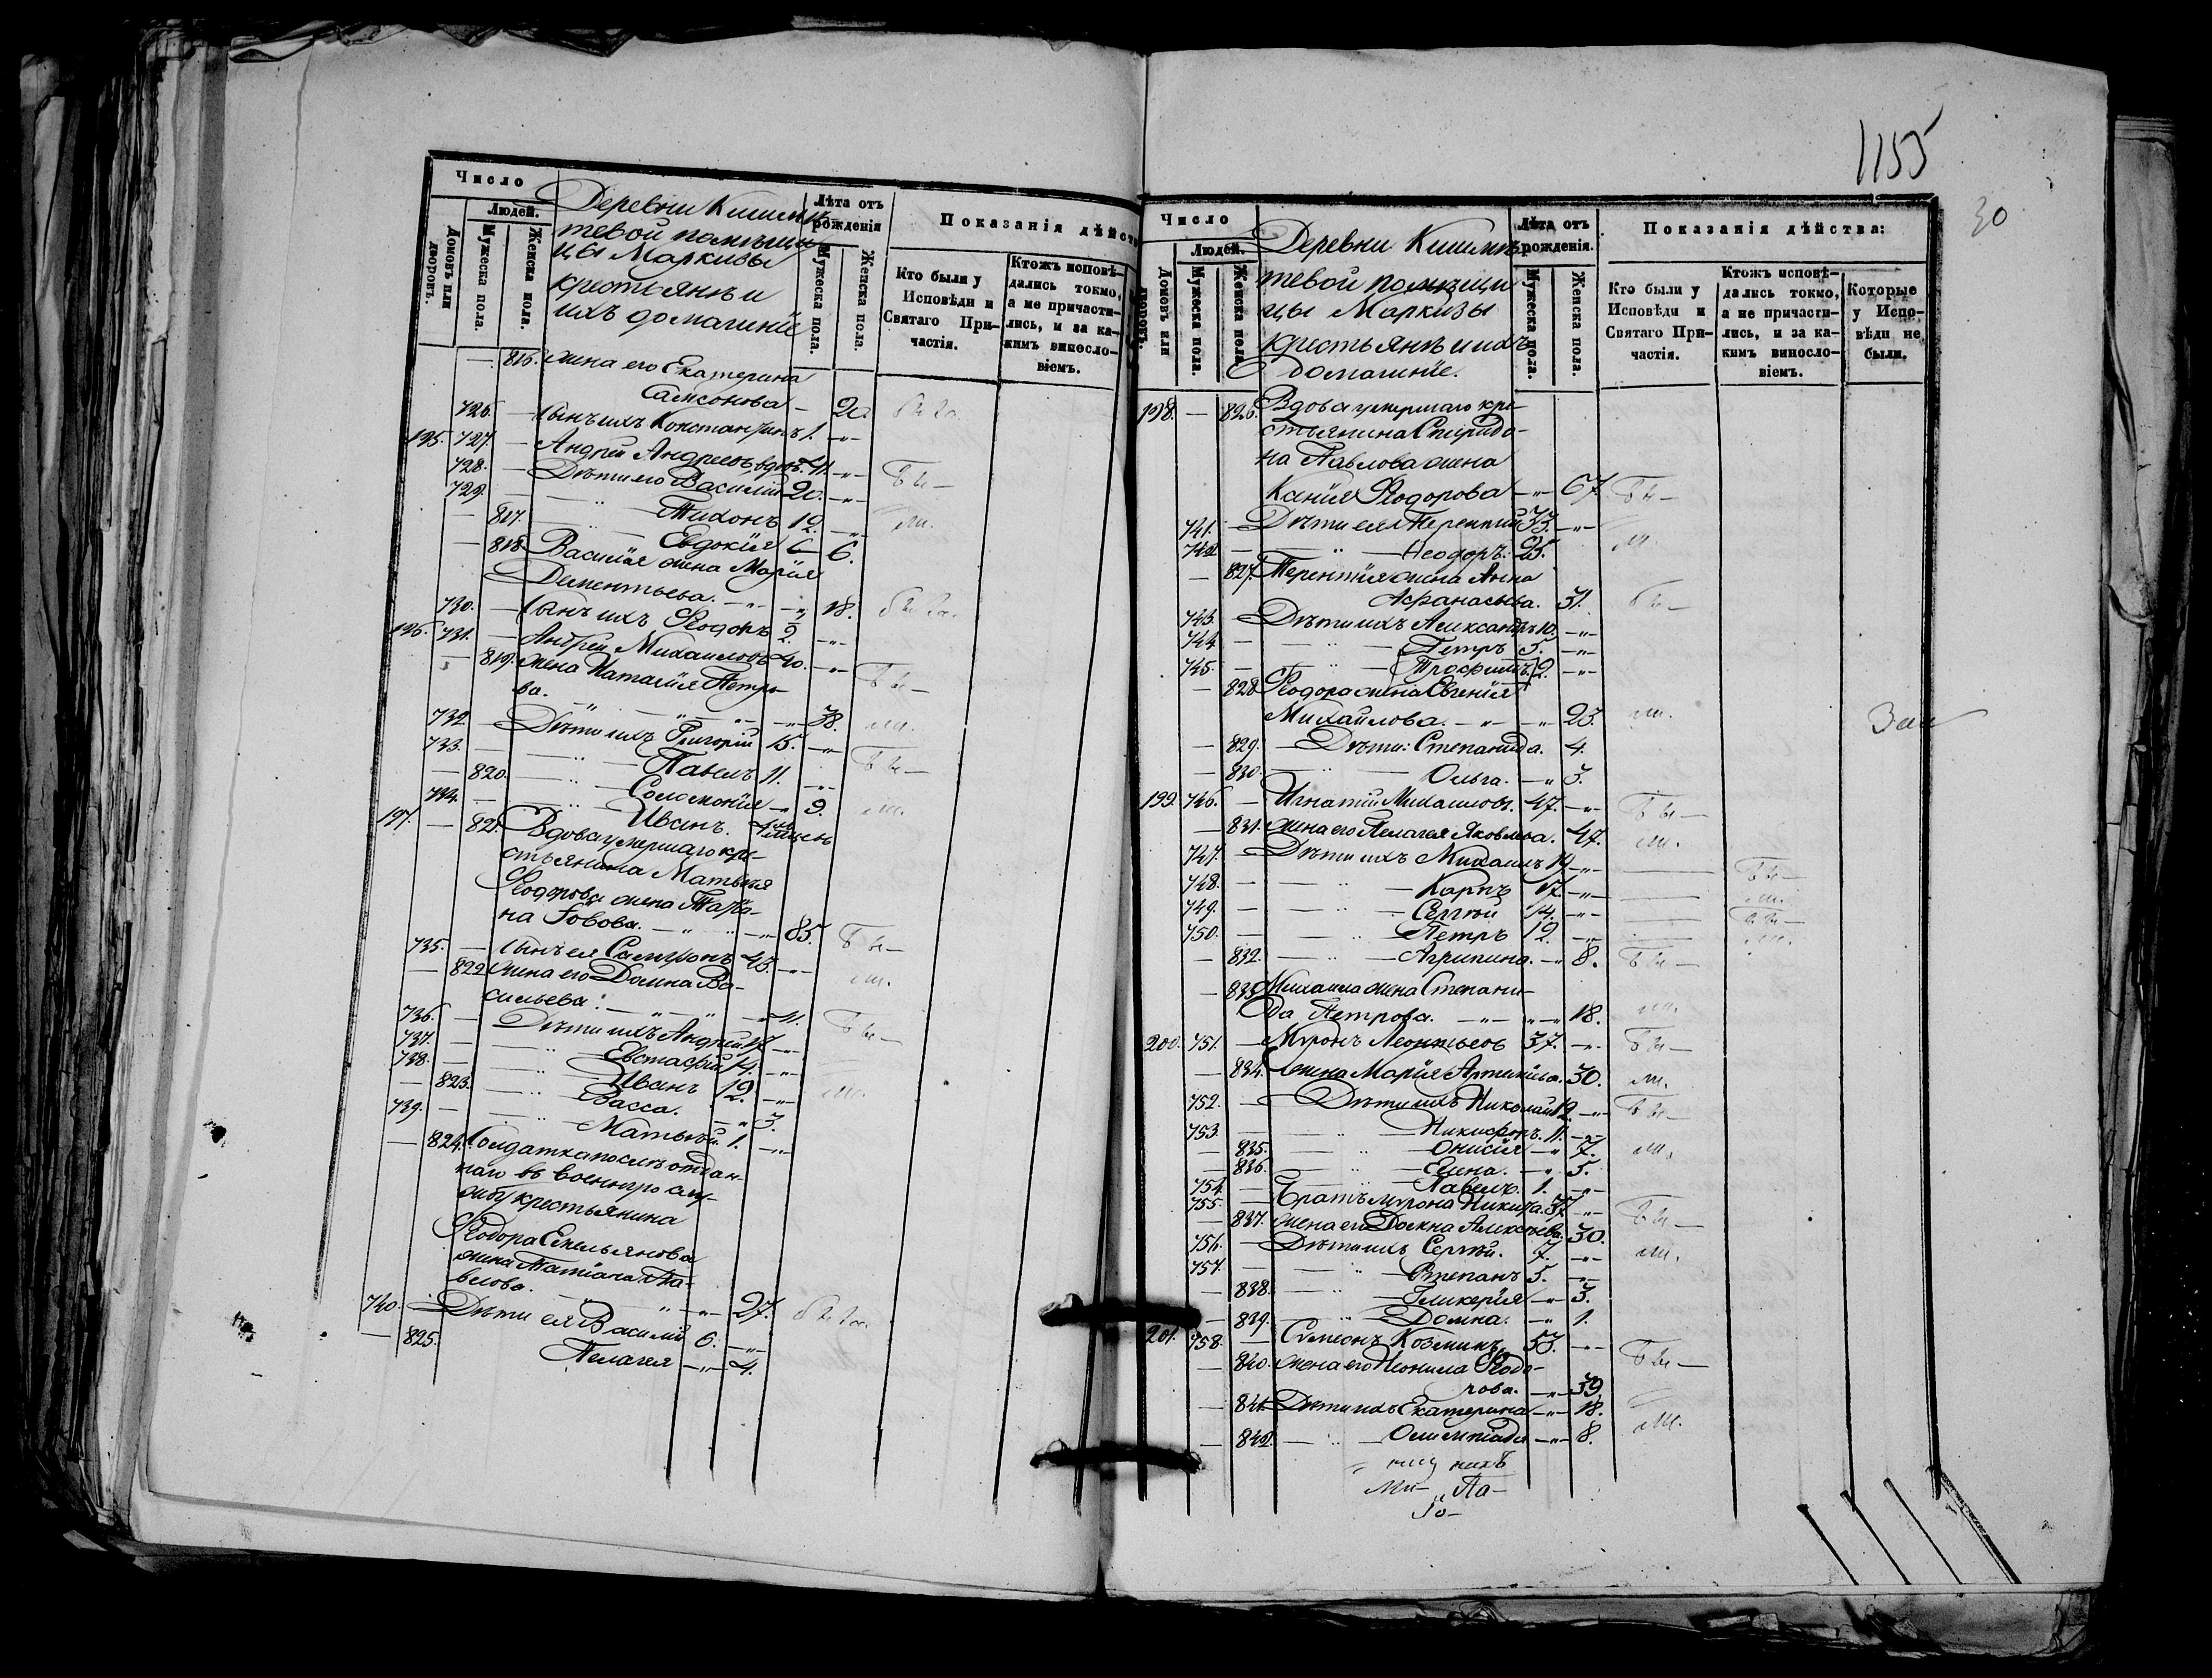 Число
Людей.
Домовъ или дворовъ.
Мужеска пола.
Женска пола.
Деревни Кишме-
тевой помѣщи-
цы Маркизы
крестьянѣ и
ихъ домашніе
Лѣта отъ рожденія
Мужеска пола.
Женска пола.
Показанія дѣйств
Кто были у Исповѣди и Святаго При-частія.
Ктожъ исповѣ-дались токмо, а не причасти-лись, и за ка-кимъ виносло-віемъ.
— 816. жена его Екатерина
Самсонова — 20
726. — Сынъ ихъ Константинъ 1. —"—
195. 727. — Андрей Андреевъ вдов. 41. —"—
728. — Дѣти его Василій 20. —"—
729. — Тихонъ 12. —"—
— 817. Евдокія 6.
— 818. Василія жена Марія
Дементьева. — 18.
730. — Сынъ ихъ Ѳеодоръ 2. —"—
196. 731. — Андрей Михайловъ 40. —"—
— 819. жена Наталія Петро-
ва. — 38.
732. — Дѣти ихъ Григорій 15. —"—
733. — Павелъ 11. —"—
— 820. Соломонія —"— 9.
734. — Иванъ.
197. — 821. Вдова умершаго кре-
стьянина Матвѣя
Ѳеодорова жена Татья-
на Іовова. — 85.
735. — Сынъ ея Сампсонъ 43. —"—
— 822. жена его Домна Ва-
сильева: — 41.
736. — Дѣти ихъ Андрей 18. —"—
737. — Евстафій 14. —"—
738. — Иванъ 12. —"—
— 823. Васса. —"— 3.
739. — Матвѣй. 1. —"—
— 824. Солдатка послѣ отдан-
наго въ военную слу-
жбу крестьянина
Ѳеодора Емельянова
жена Татіана Па-
влова. — 27.
740. — Дѣти ея Василій 6. —"—
— 825. Пелагея —"— 4.
1155
30
Число
Людей.
Домовъ или дворовъ.
Мужеска пола.
Женска пола.
Деревни Кишме-
тевой помѣщи-
цы Маркизы
крестьянѣ и ихъ
домашніе.
Лѣта отъ рожденія.
Мужеска пола.
Женска пола.
Показанія дѣйства:
Кто были у Исповѣди и Святаго При-частія.
Ктожъ исповѣ-дались токмо, а не причасти-лись, и за ка-кимъ виносло-віемъ.
Которые у Испо-вѣди не были.
198. — 826. Вдова умершаго кре-
стьянина Спиридо-
на Павлова жена
Ксенія Ѳеодорова —"— 67.
741. — Дѣти ея: Терентій 33. —"—
742. — Ѳеодоръ. 25.
— 827. Терентія жена Анна
Афанасьева. 31.
743. — Дѣти ихъ Александръ 10. —"—
744. — Петръ 5. —"—
745. — Трофимъ. 2. —"—
— 828. Ѳеодора жена Евгенія
Михайлова. —"— 23.
— 829. — Дѣти: Степанида. 4.
— 830. Ольга. —"— 3.
199. 746. — Игнатій Михайловъ. 47. —"—
— 831. жена его Пелагея Яковлева. 47.
747. — Дѣти ихъ Михаилъ 19. —"—
748. — Карпъ 17. —"—
749. — Сергѣй 14. —"—
750. — Петръ 12. —"—
— 832. Агрипина. —"— 8.
— 833. Михаила жена Степани-
да Петрова. —"— 18.
200. 751. — Миронъ Леонтьевъ 37. —"—
— 834. жена Марія 30.
752. — Дѣти ихъ Николай 12. —"—
753. — Никифоръ. 11. —"—
— 835. Онисія —"— 7.
— 836. Елена. —"— 5.
754. — Павелъ. 1. —"—
755. — Братъ Мирона Никита. 37. —"—
— 837. жена его Домна Алексѣева. 30.
756. — Дѣти ихъ Сергѣй. 7. —"—
757. — Степанъ 5. —"—
— 838. Гликерія —"— 3.
— 839. Домна. —"— 1.
201. 758. — Симеонъ Козминъ 53. —"—
— 840. жена его Неонила Ѳеодо-
рова. —"— 39.
— 841. Дѣти ихъ Екатерина —"— 18.
— 842. Олимпіада —"— 8.